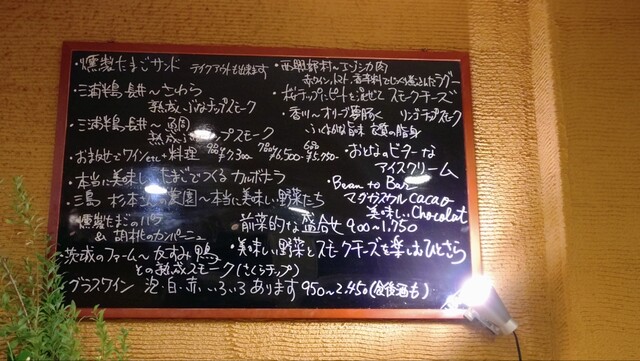 ・燻製たまごサンド テイクアウトも出来ます
・三浦半島・長井〜さわら
熟成、ぶなチップスモーク
・三浦半島・長井〜
熟成 チップスモーク
・おまかせでワインetc+料理 ¥7,300 ¥6,500 ¥5,750
・本当に美味しいたまごでつくるカルボナーラ
・三島 杉本さんの農園〜本当に美味しい野菜たち
燻製たまごのババ
& 胡桃のカンパーニュ
前菜的な盛合せ 900〜1,750
・茨城のファーム〜 鴨
との熟成スモーク(さくらチップ)
・美味しい野菜とスモークチーズを楽しむひとさら
・グラスワイン 泡・白・赤、いろいろあります 950〜2,450(食後酒も)
・西興部村〜エゾシカ肉
赤ワイン、トマト、香辛料でじっくり煮こんだラグー
・桜チップにピートを混ぜて スモークチーズ
・香川〜オリーブ夢豚 リンゴチップスモーク
旨味 脂身
・おとなのビターな
アイスクリーム
・Bean to Bar
マダガスカル cacao
美味しい Chocolat